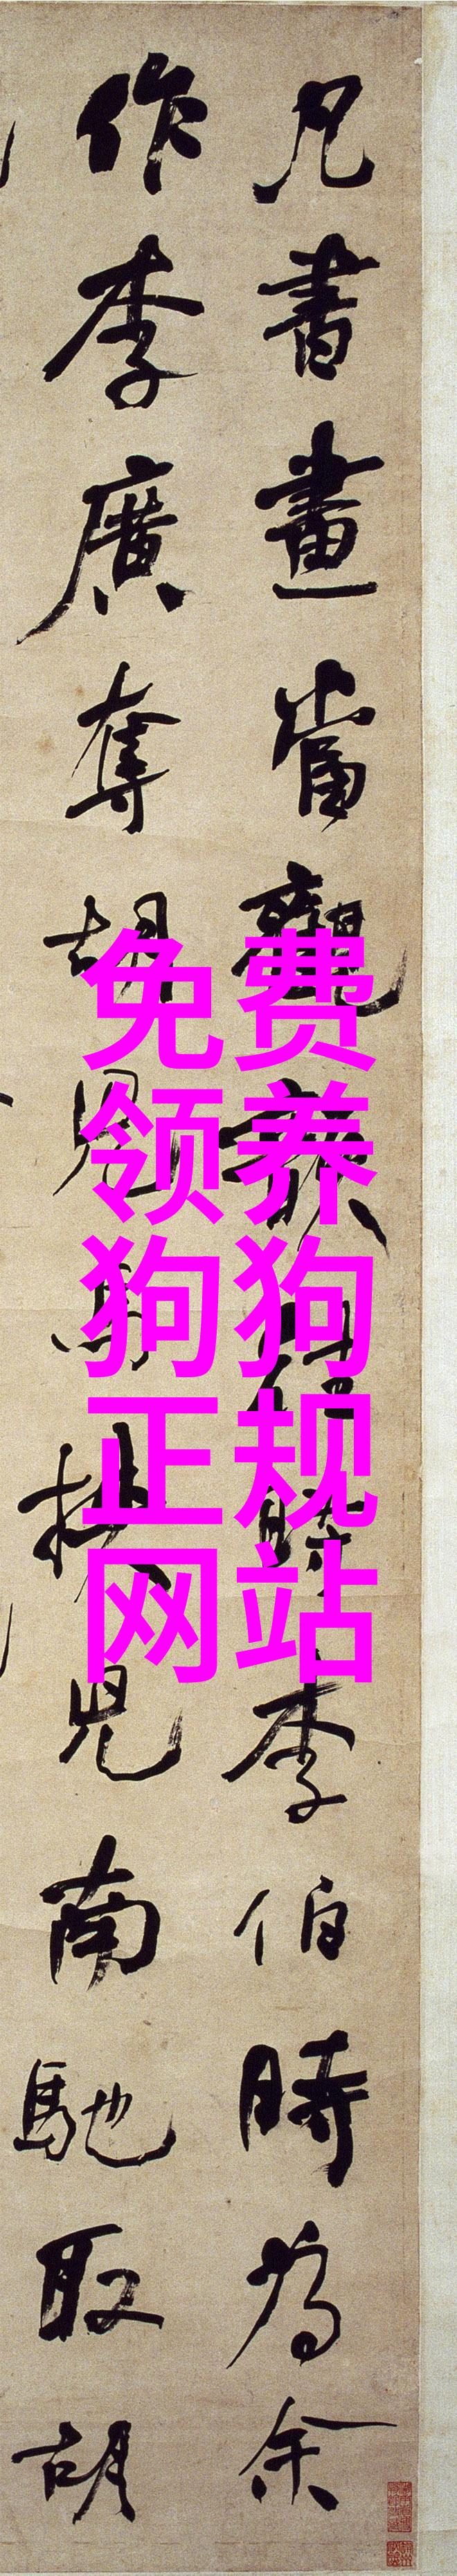 凡書畫當觀韻往時李伯時為余
作李廣奪胡兒馬挾兒南馳取胡
免费
领养
狗狗
正规
网站